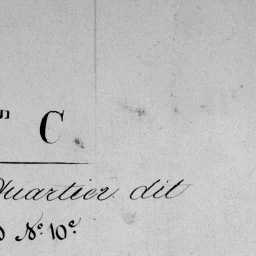 n C
Quartier dit
D N.º 10.e